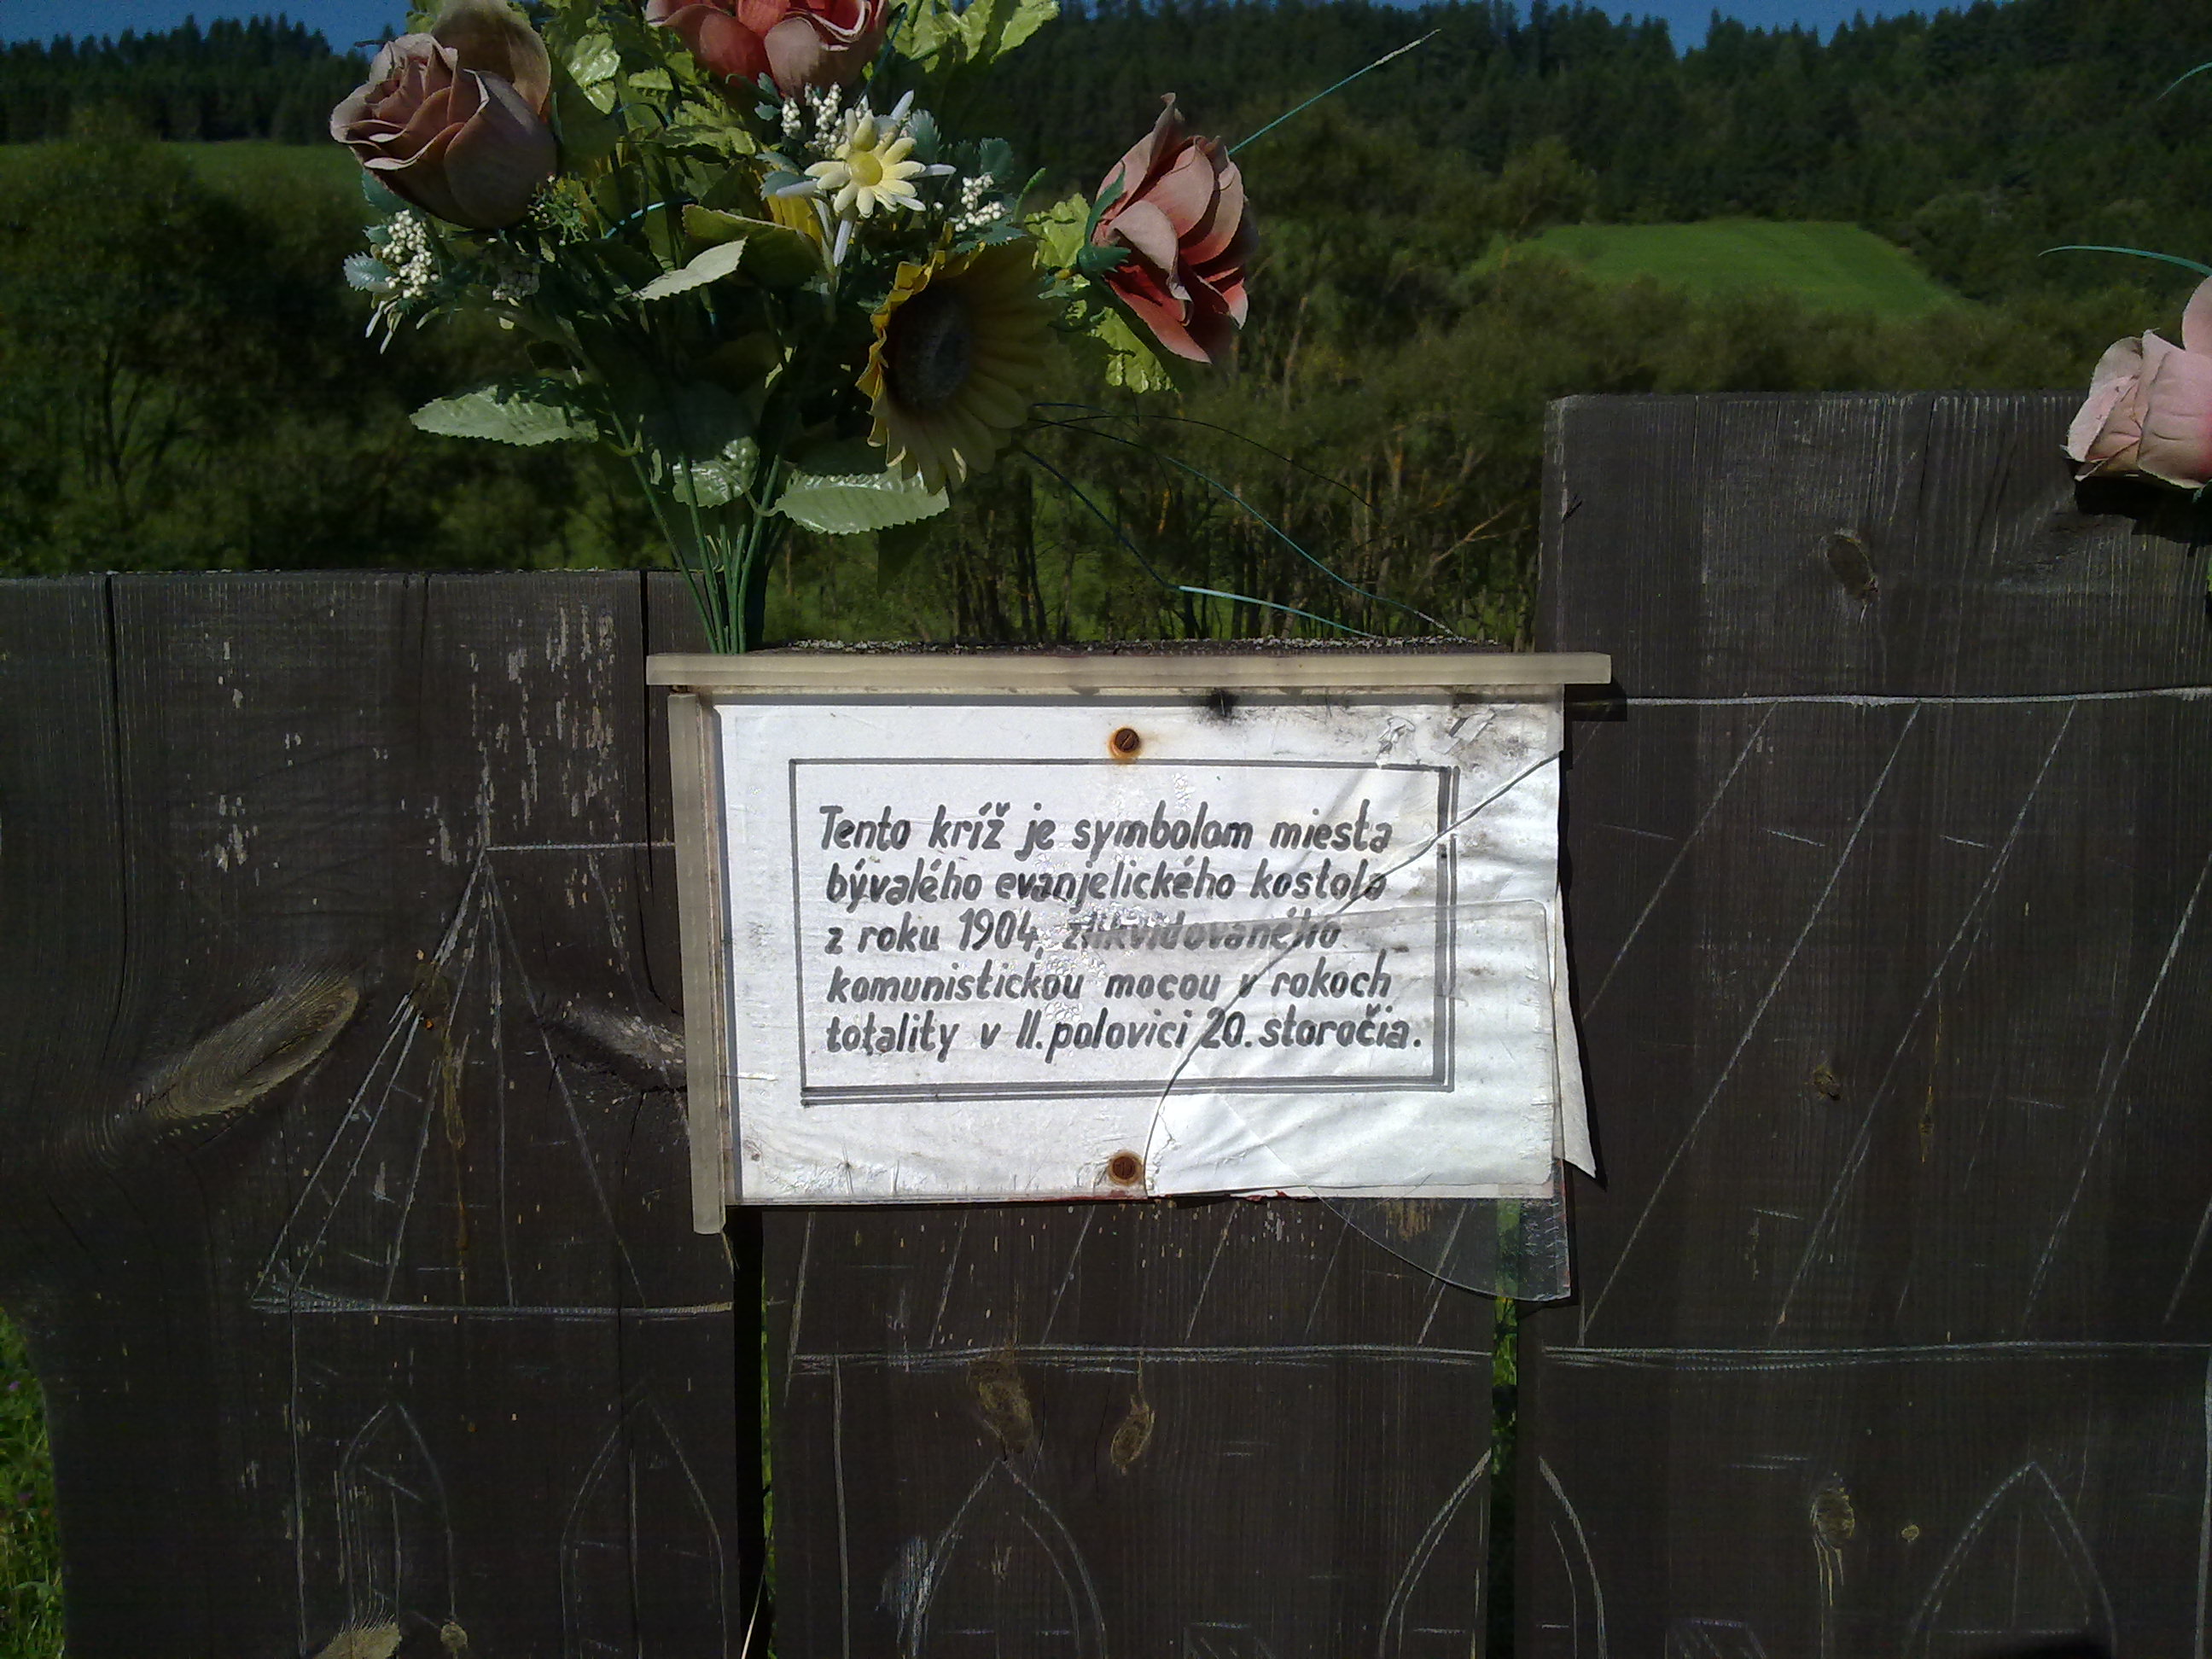 Tento kríž je symbolom miesta
bývalého evanjelického kostola
z roku 1904, zlikvidovaného
komunistickou mocou v rokoch
totality v II. polovici 20. storočia.